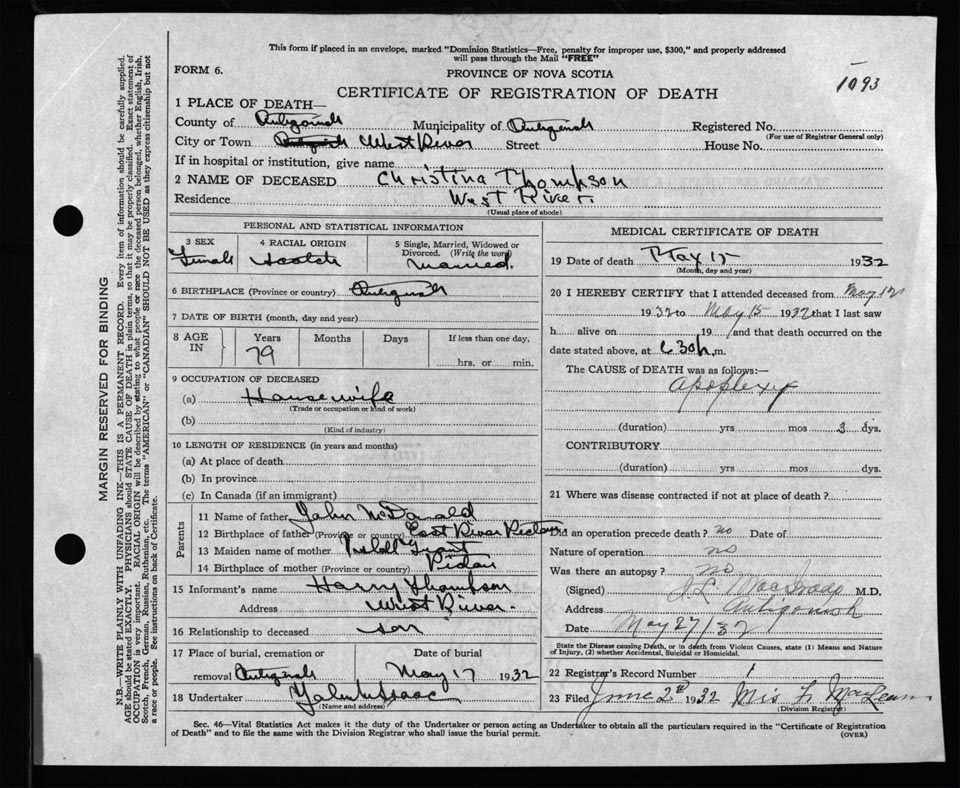 This form if placed in an envelope, marked "Dominion Statistics—Free, penalty for improper use, $300," and properly addressed
will pass through the Mail "FREE"
FORM 6.
PROVINCE OF NOVA SCOTIA
1093
CERTIFICATE OF REGISTRATION OF DEATH
1 PLACE OF DEATH—
County of Antigonish Municipality of Antigonish Registered No.
(For use of Registrar General only)
City or Town Antigonish West River Street House No.
If in hospital or institution, give name
2 NAME OF DECEASED Christina Thompson
Residence West River
(Usual place of abode)
PERSONAL AND STATISTICAL INFORMATION
3 SEX Female
4 RACIAL ORIGIN Scotch
5 Single, Married, Widowed or
Divorced. (Write the word)
Married.
6 BIRTHPLACE (Province or country) Antigonish
7 DATE OF BIRTH (month, day and year)
8 AGE IN Years Months Days If less than one day,
79 hrs. or min.
9 OCCUPATION OF DECEASED
(a) Housewife
(Trade or occupation or kind of work)
(b)
(Kind of industry)
10 LENGTH OF RESIDENCE (in years and months)
(a) At place of death
(b) In province
(c) In Canada (if an immigrant)
Parents
11 Name of father John McDonald
12 Birthplace of father (Province or country) East River Pictou
13 Maiden name of mother Grant
14 Birthplace of mother (Province or country) Pictou
15 Informant's name Harry Thompson
Address West River.
16 Relationship to deceased son
17 Place of burial, cremation or Date of burial
removal Antigonish May 17 1932
18 Undertaker
(Name and address)
MEDICAL CERTIFICATE OF DEATH
19 Date of death May 15 1932
(Month, day and year)
20 I HEREBY CERTIFY that I attended deceased from May 12
1932 to May 15 1932 that I last saw
h alive on 19 and that death occurred on
date stated above, at 6 30 m.
The CAUSE of DEATH was as follows:—
apoplexy
(duration) yrs mos 3 dys.
CONTRIBUTORY
(duration) yrs mos dys.
21 Where was disease contracted if not at place of death?
Did an operation precede death? no Date of
Nature of operation no
Was there an autopsy? no
(Signed) M.D.
Address Antigonish
Date May 27/32
State the Disease causing Death, or in death from Violent Causes, state (1) Means and Nature
of Injury, (2) whether Accidental, Suicidal or Homicidal.
22 Registrar's Record Number 1
23 Filed June 2nd 1932 MacLean
(Division Registrar)
Sec. 46—Vital Statistics Act makes it the duty of the Undertaker or person acting as Undertaker to obtain all the particulars required in the "Certificate of Registration
of Death" and to file the same with the Division Registrar who shall issue the burial permit.
(OVER)
MARGIN RESERVED FOR BINDING
N.B.—WRITE PLAINLY WITH UNFADING INK—THIS IS A PERMANENT RECORD. Every item of information should be carefully supplied.
AGE should be stated EXACTLY. PHYSICIANS should STATE CAUSE OF DEATH in plain terms, so that it may be properly classified. Exact statement of
OCCUPATION is very important. RACIAL ORIGIN will be described by stating to what people or race the deceased person belonged, whether English, Irish,
Scotch, French, German, Russian, Ruthenian, etc. The terms "AMERICAN" or "CANADIAN" SHOULD NOT BE USED as they express citizenship but not
a race or people. See instructions on back of Certificate.